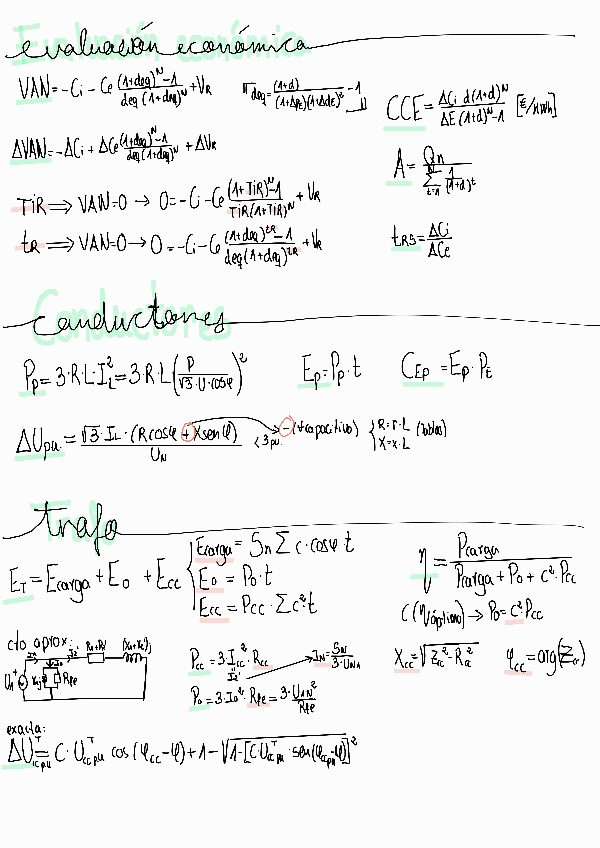 Evaluación económica
VAN = -Ci - Ce \frac{(1+deq)^N - 1}{deq (1+deq)^N} + VR
deq = \frac{(1+d)}{(1+Δpe)(1+ΔdE)^2} - 1
CCE = \frac{ΔCi d(1+d)^N}{ΔE (1+d)^N - 1} [€/kWh]
ΔVAN = -ΔCi + ΔCe \frac{(1+deq)^N - 1}{deq (1+deq)^N} + ΔVR
A = \frac{Qn}{\sum_{t=1}^{N} \frac{1}{(1+d)^t}}
TiR ⟹ VAN=0 → 0 = -Ci - Ce \frac{(1+TiR)^N - 1}{TiR (1+TiR)^N} + VR
tR ⟹ VAN=0 → 0 = -Ci - Ce \frac{(1+deq)^{tR} - 1}{deq (1+deq)^{tR}} + VR
tRS = \frac{ΔCi}{ΔCe}
Conductores
Pp = 3·R·L·I_L^2 = 3·R·L (\frac{P}{\sqrt{3}·U·cosφ})^2
Ep = Pp·t
CEp = Ep·Pt
ΔUpu = \frac{\sqrt{3}·IL·(Rcosφ + Xsenφ)}{UN}
<3pu
- (φcapacitivo)
{ R = r·L (tablas)
X = x·L
trafo
ET = Ecarga + E0 + Ecc
{ Ecarga = Sn Σ c·cosφ t
E0 = P0·t
Ecc = Pcc·Σc²·t
η = \frac{Pcarga}{Pcarga + P0 + c²·Pcc}
C(ηóptimo) → P0 = c²Pcc
cto aprox:
Pcc = 3·I_{1cc}^2·Rcc
IN = \frac{SN}{3·UNA}
Xcc = \sqrt{Zcc² - Rcc²}
φcc = arg(Zcc)
P0 = 3·I0²·RFe = \frac{3·U_{1N}^2}{RFe}
exacta:
ΔU^T_{cpu} = C·U^T_{ccpu} cos(φcc-φ) + 1 - \sqrt{1-[C·U^T_{ccpu}·sen(φccpu-φ)]^2}